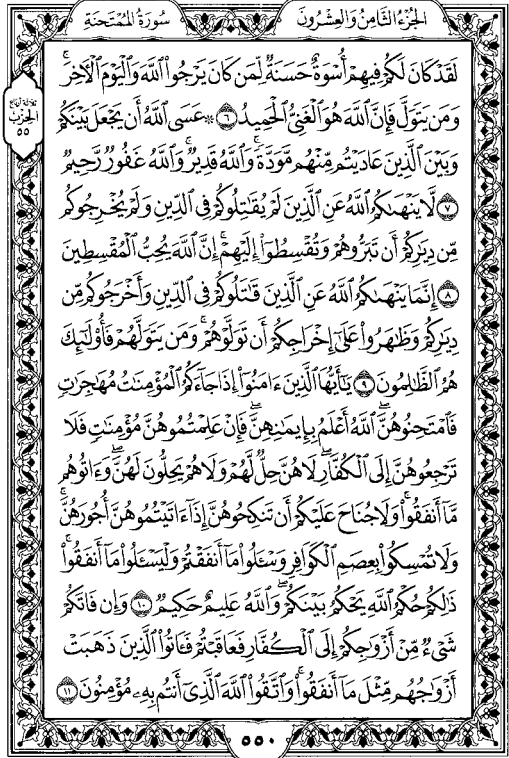 سُورَةُ المُمْتَحنَةِ
الجُزْءُ الثَّامِنُ وَالعِشْرُونَ
لَقَدْ كَانَ لَكُمْ فِيهِمْ أُسْوَةٌ حَسَنَةٌ لِّمَن كَانَ يَرْجُوا۟ ٱللَّهَ وَٱلْيَوْمَ ٱلْءَاخِرَ ۚ
وَمَن يَتَوَلَّ فَإِنَّ ٱللَّهَ هُوَ ٱلْغَنِىُّ ٱلْحَمِيدُ ٦ ۞ عَسَى ٱللَّهُ أَن يَجْعَلَ بَيْنَكُمْ
وَبَيْنَ ٱلَّذِينَ عَادَيْتُم مِّنْهُم مَّوَدَّةً ۚ وَٱللَّهُ قَدِيرٌ ۚ وَٱللَّهُ غَفُورٌ رَّحِيمٌ
٧ لَّا يَنْهَىٰكُمُ ٱللَّهُ عَنِ ٱلَّذِينَ لَمْ يُقَـٰتِلُوكُمْ فِى ٱلدِّينِ وَلَمْ يُخْرِجُوكُم
مِّن دِيَـٰرِكُمْ أَن تَبَرُّوهُمْ وَتُقْسِطُوٓا۟ إِلَيْهِمْ ۚ إِنَّ ٱللَّهَ يُحِبُّ ٱلْمُقْسِطِينَ
٨ إِنَّمَا يَنْهَىٰكُمُ ٱللَّهُ عَنِ ٱلَّذِينَ قَـٰتَلُوكُمْ فِى ٱلدِّينِ وَأَخْرَجُوكُم مِّن
دِيَـٰرِكُمْ وَظَـٰهَرُوا۟ عَلَىٰٓ إِخْرَاجِكُمْ أَن تَوَلَّوْهُمْ ۚ وَمَن يَتَوَلَّهُمْ فَأُو۟لَـٰٓئِكَ
هُمُ ٱلظَّـٰلِمُونَ ٩ يَـٰٓأَيُّهَا ٱلَّذِينَ ءَامَنُوٓا۟ إِذَا جَآءَكُمُ ٱلْمُؤْمِنَـٰتُ مُهَـٰجِرَٰتٍ
فَٱمْتَحِنُوهُنَّ ۖ ٱللَّهُ أَعْلَمُ بِإِيمَـٰنِهِنَّ ۖ فَإِنْ عَلِمْتُمُوهُنَّ مُؤْمِنَـٰتٍ فَلَا
تَرْجِعُوهُنَّ إِلَى ٱلْكُفَّارِ ۖ لَا هُنَّ حِلٌّ لَّهُمْ وَلَا هُمْ يَحِلُّونَ لَهُنَّ ۖ وَءَاتُوهُم
مَّآ أَنفَقُوا۟ ۚ وَلَا جُنَاحَ عَلَيْكُمْ أَن تَنكِحُوهُنَّ إِذَآ ءَاتَيْتُمُوهُنَّ أُجُورَهُنَّ ۚ
وَلَا تُمْسِكُوا۟ بِعِصَمِ ٱلْكَوَافِرِ وَسْـَٔلُوا۟ مَآ أَنفَقْتُمْ وَلْيَسْـَٔلُوا۟ مَآ أَنفَقُوا۟ ۚ
ذَٰلِكُمْ حُكْمُ ٱللَّهِ يَحْكُمُ بَيْنَكُمْ ۖ وَٱللَّهُ عَلِيمٌ حَكِيمٌ ١٠ وَإِن فَاتَكُمْ
شَىْءٌ مِّنْ أَزْوَٰجِكُمْ إِلَى ٱلْكُفَّارِ فَعَاقَبْتُمْ فَـَٔاتُوا۟ ٱلَّذِينَ ذَهَبَتْ
أَزْوَٰجُهُم مِّثْلَ مَآ أَنفَقُوا۟ ۚ وَٱتَّقُوا۟ ٱللَّهَ ٱلَّذِىٓ أَنتُم بِهِۦ مُؤْمِنُونَ ١١
الحِزْب
٥٥
٥٥٠